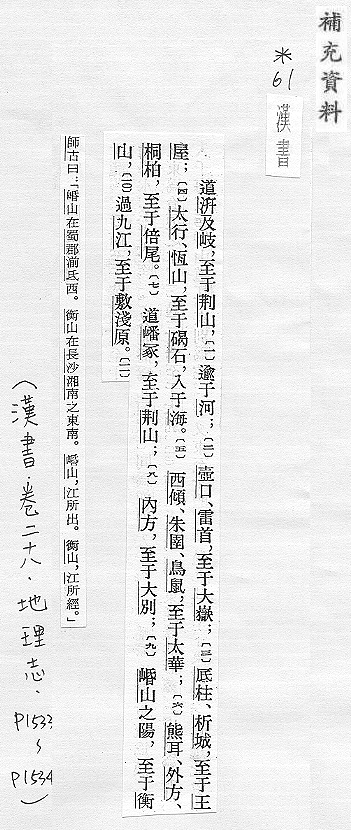 補充資料
*61
漢書
道汧及岐，至于荆山，〔一〕逾于河；〔二〕壺口、雷首，至于大嶽；〔三〕厎柱、析城，至于王
屋；〔四〕太行、恆山，至于碣石，入于海。〔五〕西傾、朱圉、鳥鼠，至于太華；〔六〕熊耳、外方、
桐柏，至于倍尾。〔七〕道嶓冢，至于荆山；〔八〕內方，至于大別；〔九〕㟭山之陽，至于衡
山，〔一〇〕過九江，至于敷淺原。〔一一〕
師古曰：「㟭山在蜀郡湔氐西。衡山在長沙湘南之東南。㟭山，江所出。衡山，江所經。」
（漢書．卷二十八．地理志．P1533～P1534）